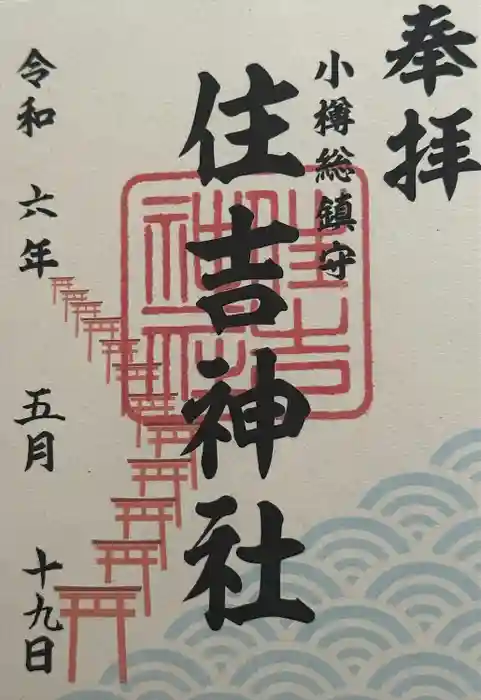 奉拝
小樽総鎮守
住吉神社
住吉神社
令和六年五月十九日